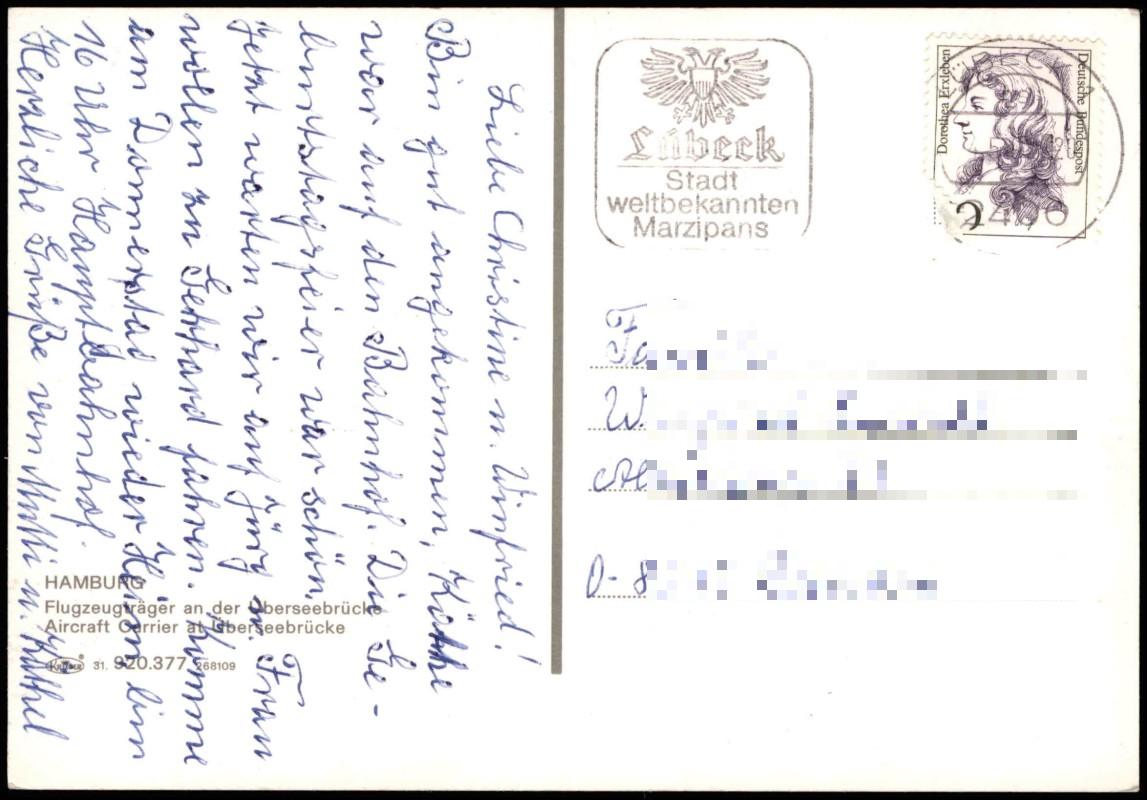 Liebe Christine u. Winfried!
Bin gut angekommen, Käthe
war auf den Bahnhof. Die Ge-
burtstagsfeier war schön.
Jetzt warten wir auf Jürg u. Frau
wollen zu Gerhard fahren. Komme
am Donnerstag wieder. bin
16 Uhr Hauptbahnhof.
Herzliche Grüße von Mutti u. Käthel
HAMBURG
Flugzeugträger an der Überseebrücke
Aircraft Carrier at Überseebrücke
Krüger 31. 920.377 268109
Lübeck
Stadt
weltbekannten
Marzipans
Dorothea Erxleben
Deutsche Bundespost
D-8